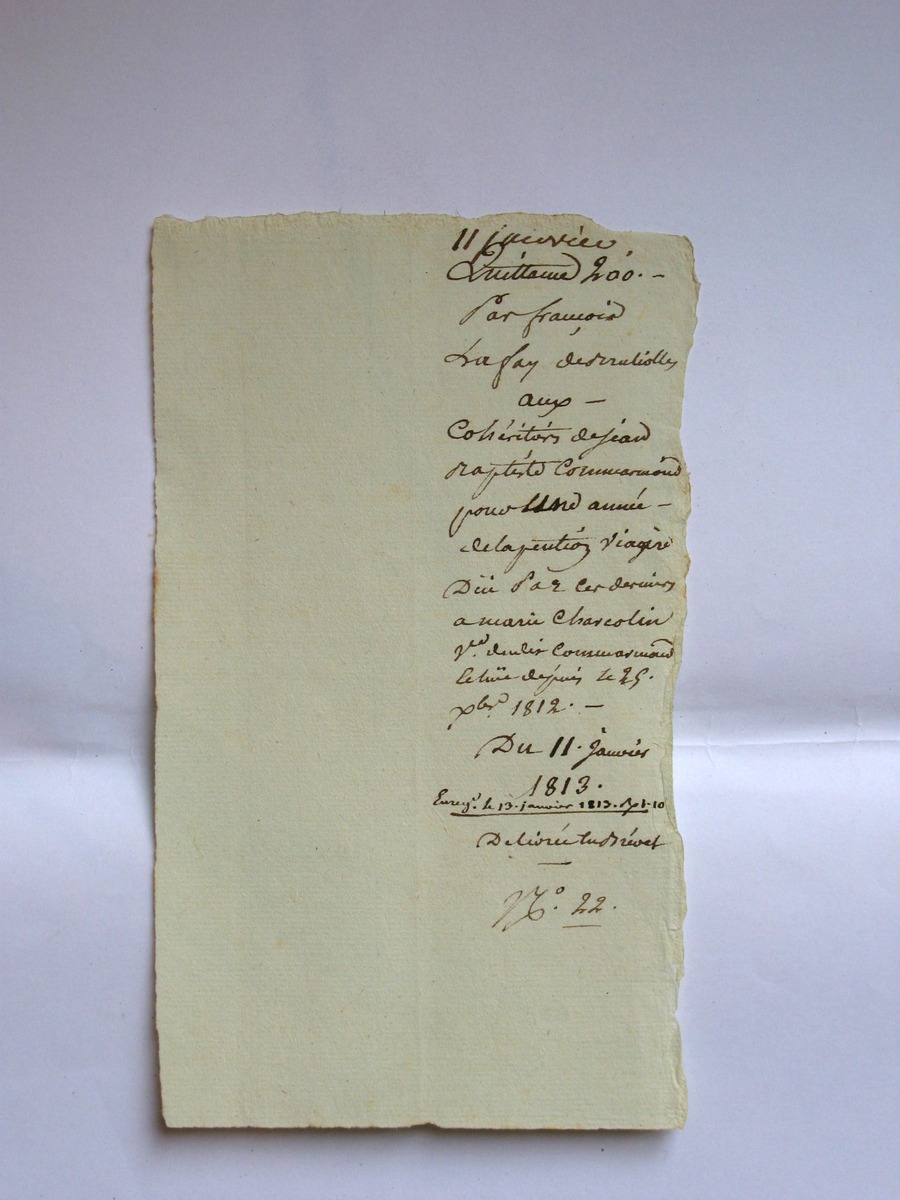 11 janvier
Quittance 200. –
Par françois
Lafay
aux –
Cohéritiérs de jéan
Baptiste Commarmond
pour Une année –
de la pention Viagére
Düe Par ces derniers
a marie Charcolin
Vve. dudit Commarmond
échüe depuis le 25.
xbre. 1812. –
Du 11. janviér
1813.
Enregé. le 13. janvier 1813. 1-10
Delivrée en Brévet
No. 22.